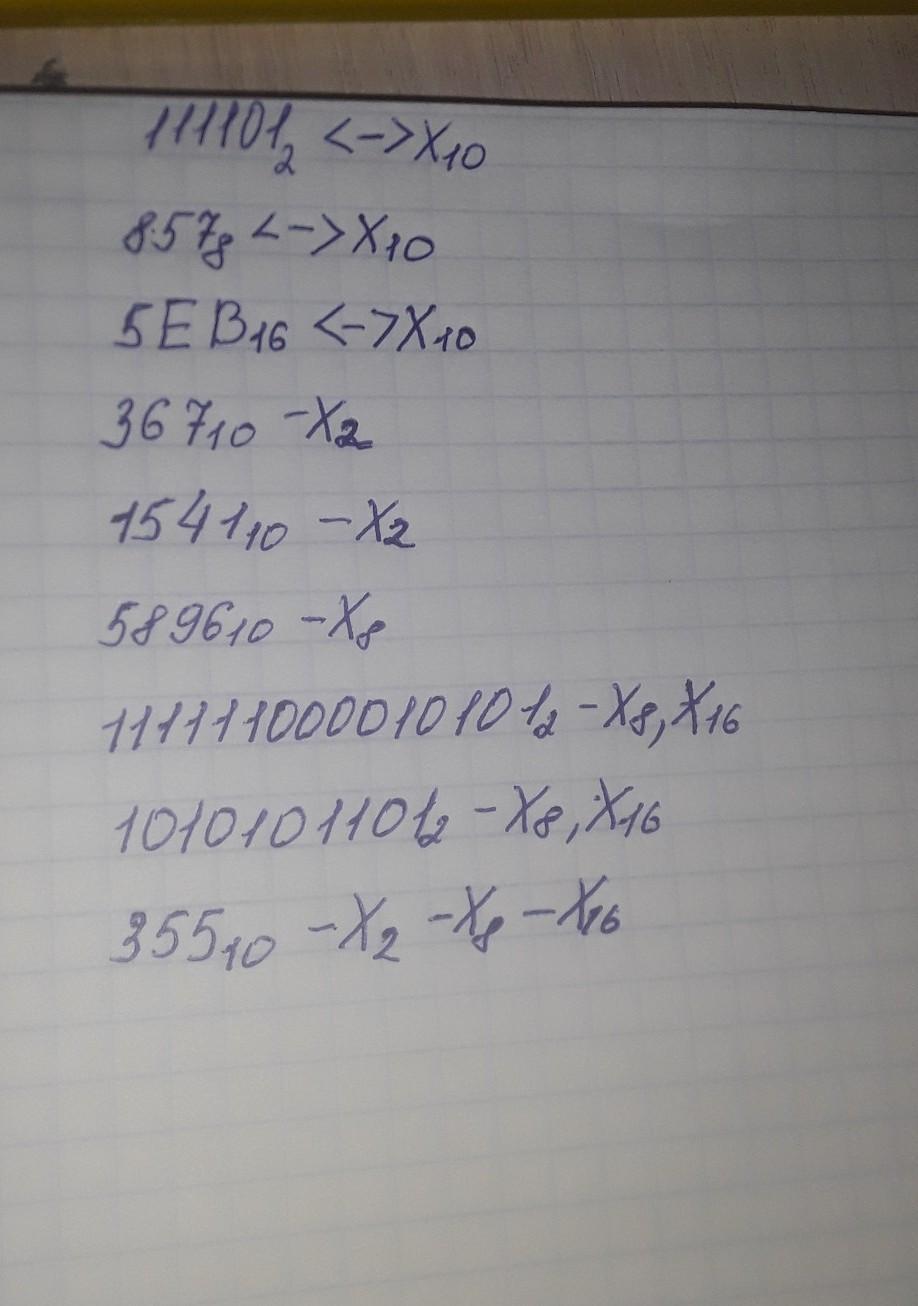 111101₂ <-> X₁₀
857₈ <-> X₁₀
5EB₁₆ <-> X₁₀
367₁₀ - X₂
1541₁₀ - X₂
5896₁₀ - X₈
111111000010101₂ - X₈, X₁₆
1010101101₂ - X₈, X₁₆
355₁₀ - X₂ - X₈ - X₁₆